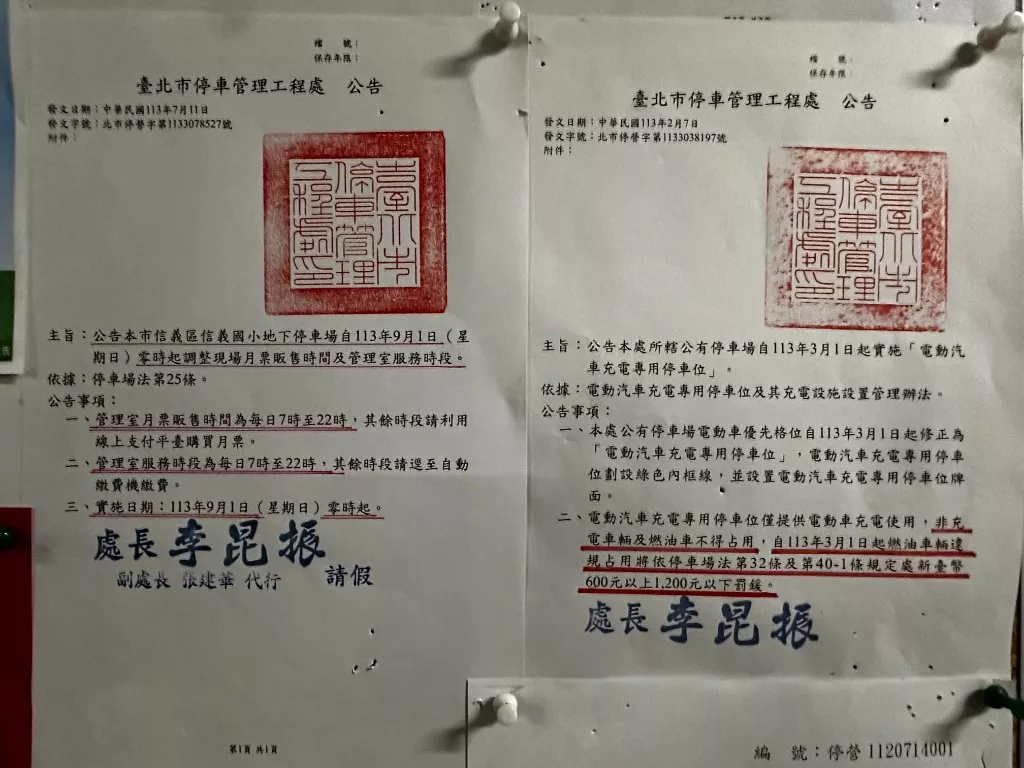 檔　號：
保存年限：
臺北市停車管理工程處　公告
發文日期：中華民國113年7月11日
發文字號：北市停營字第1133078527號
附件：
臺北市停車管理工程處印
主旨：公告本市信義區信義國小地下停車場自113年9月1日（星
期日）零時起調整現場月票販售時間及管理室服務時段。
依據：停車場法第25條。
公告事項：
一、管理室月票販售時間為每日7時至22時，其餘時段請利用
線上支付平臺購買月票。
二、管理室服務時段為每日7時至22時，其餘時段請逕至自動
繳費機繳費。
三、實施日期：113年9月1日（星期日）零時起。
處長 李昆振 請假
副處長 張建華 代行
第1頁 共1頁
檔　號：
保存年限：
臺北市停車管理工程處　公告
發文日期：中華民國113年2月7日
發文字號：北市停營字第1133038197號
附件：
臺北市停車管理工程處印
主旨：公告本處所轄公有停車場自113年3月1日起實施「電動汽
車充電專用停車位」。
依據：電動汽車充電專用停車位及其充電設施設置管理辦法。
公告事項：
一、本處公有停車場電動車優先格位自113年3月1日起修正為
「電動汽車充電專用停車位」，電動汽車充電專用停車
位劃設綠色內框線，並設置電動汽車充電專用停車位牌
面。
二、電動汽車充電專用停車位僅提供電動車充電使用，非充
電車輛及燃油車不得占用，自113年3月1日起燃油車輛違
規占用將依停車場法第32條及第40-1條規定處新臺幣
600元以上1,200元以下罰鍰。
處長 李昆振
編　號：停營 1120714001